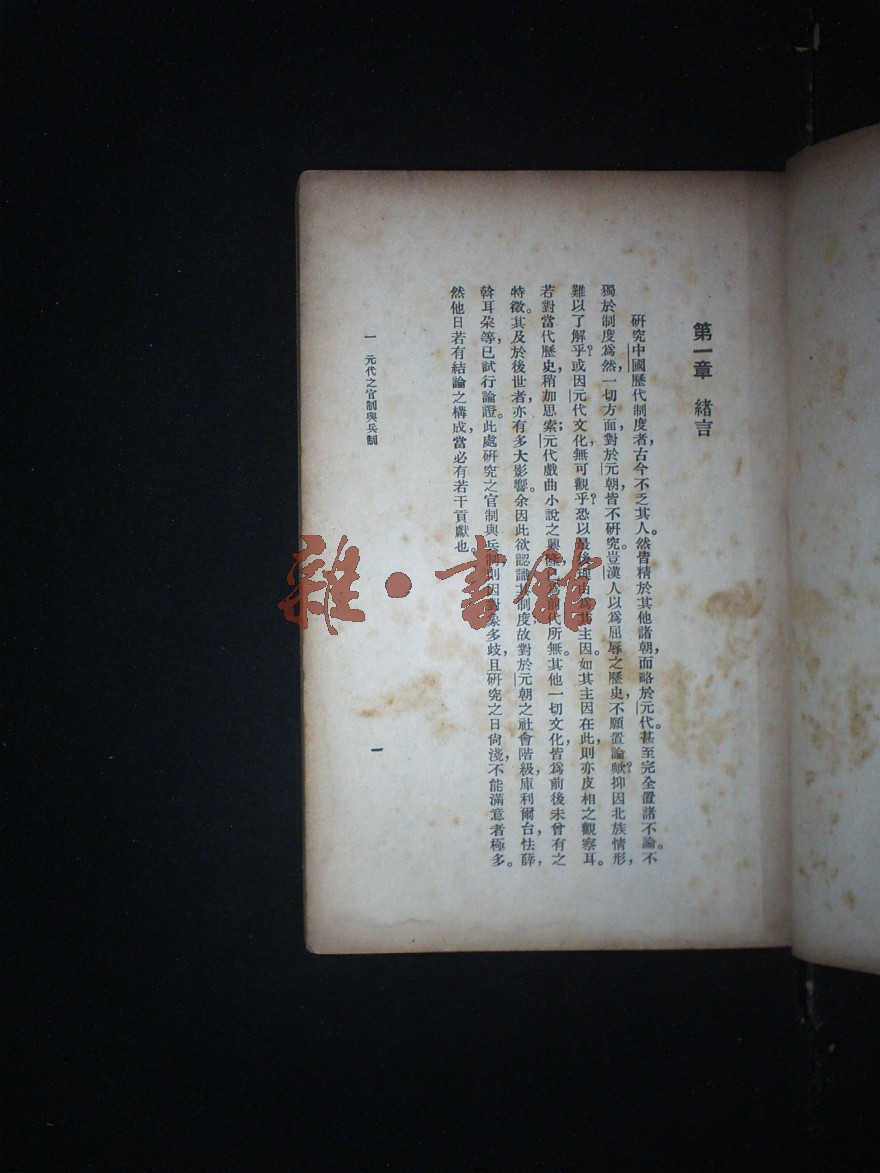 第一章 緒言
研究中國歷代制度者，古今不乏其人。然皆精於其他諸朝，而略於元代。甚至完全置諸不論。不
獨於制度爲然，一切方面，對於元朝，皆不研究。豈漢人以爲屈辱之歷史，不願置論歟？抑因北族情形，
難以了解乎？或因元代文化，無可觀乎？恐以最後理由爲其主因。如其主因在此，則亦皮相之觀察耳。
若對當代歷史，稍加思索；元代戲曲小說之興隆，已爲前代所無。其他一切文化，皆爲前後未曾有之
特徵。其及於後世者，亦有多大影響。余因此欲認識其制度，故對於元朝之社會階級，庫利爾台，怯薛，
斡耳朶等，已試行論證。此處研究之官制與兵制，則因對象多歧，且研究之日尙淺，不能滿意者極多。
然他日若有結論之構成，當必有若干貢獻也。
一 元代之官制與兵制
一
雜·書館